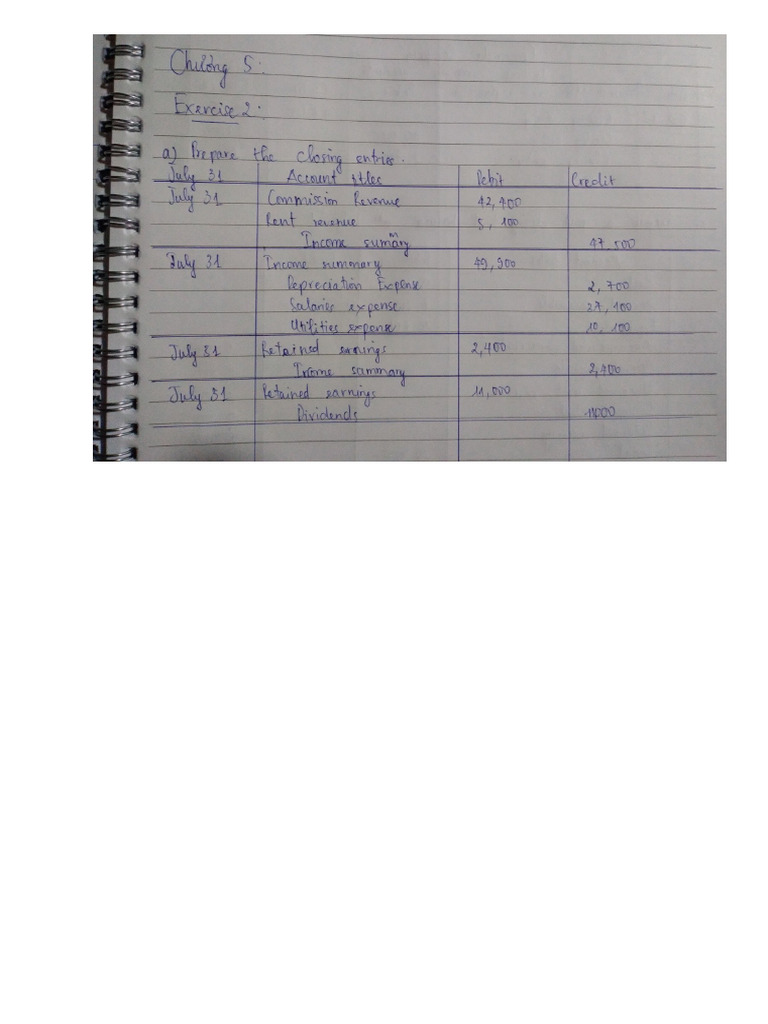 Chương 5:
Exercise 2:
a) Prepare the closing entries.
July 31 Account titles Debit Credit
July 31 Commission Revenue 42,400
Rent revenue 5,100
Income summary 47,500
July 31 Income summary 49,900
Depreciation Expense 2,700
Salaries expense 27,100
Utilities expense 10,100
July 31 Retained earnings 2,400
Income summary 2,400
July 31 Retained earnings 11,000
Dividends 11000